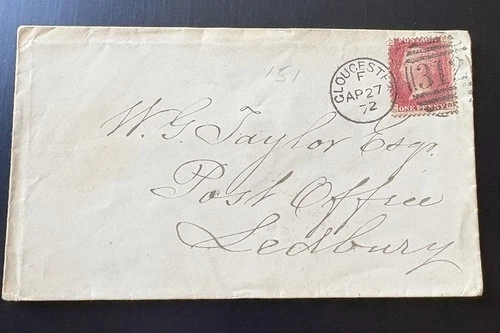 151
GLOUCESTER
F
AP 27
72
31
ONE PENNY
W. G. Taylor Esqr.
Post Office
Ledbury